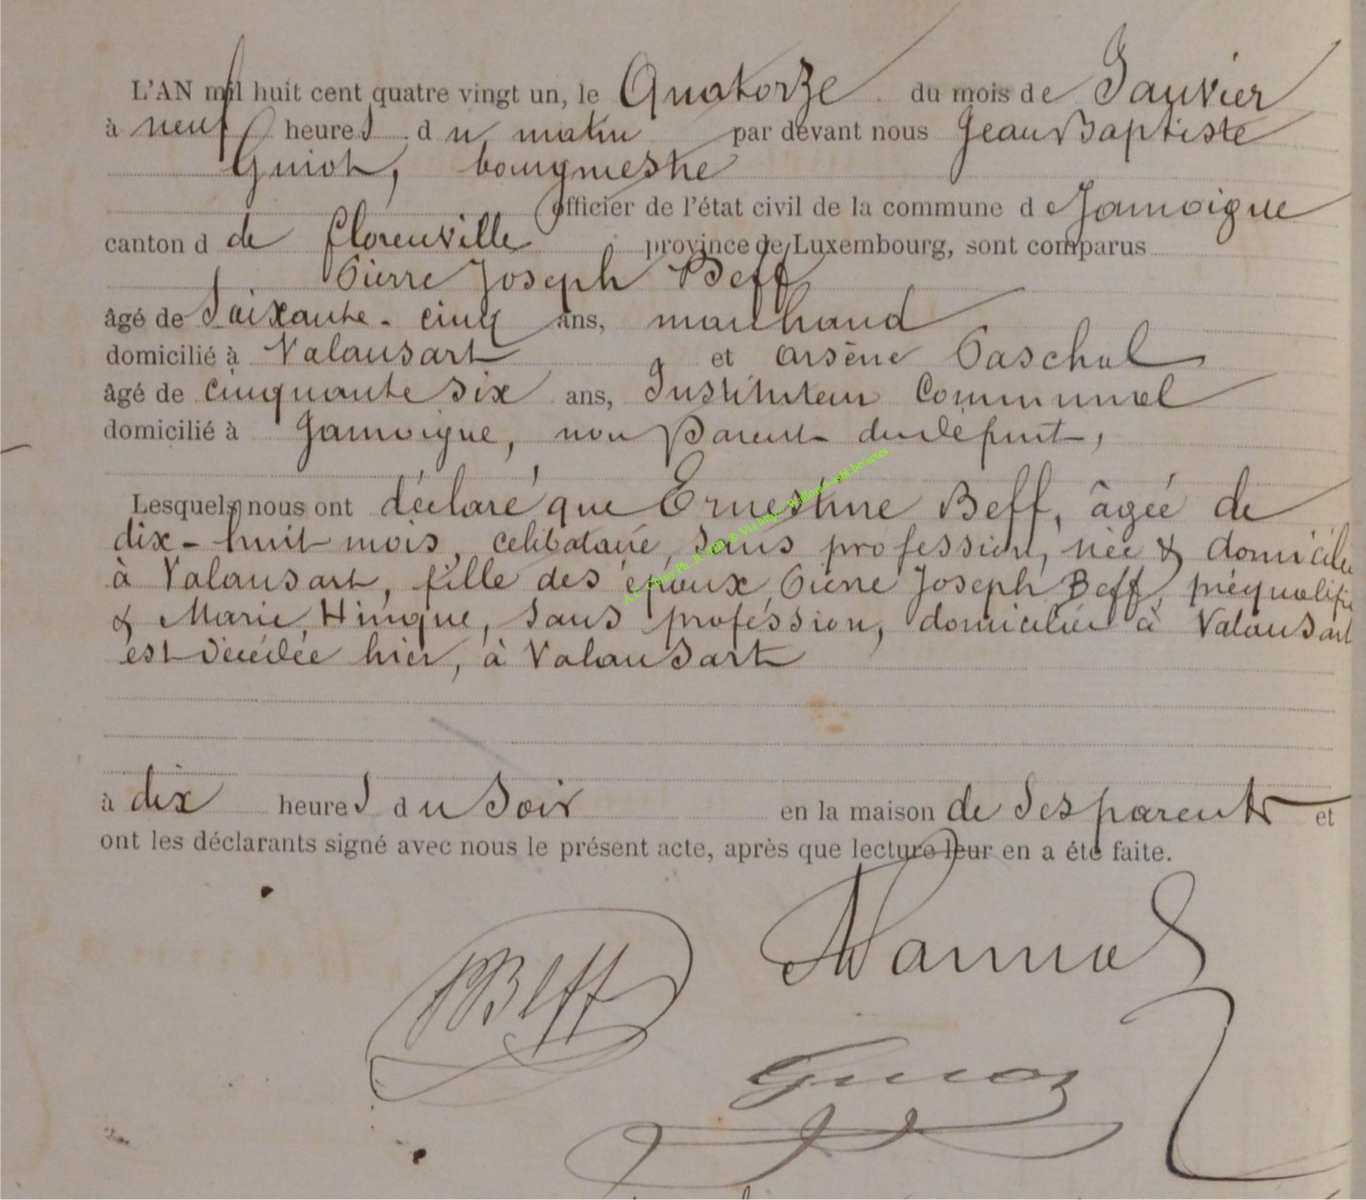 L'AN mil huit cent quatre vingt un, le Quatorze du mois de Janvier
à neuf heures du matin par devant nous Jean Baptiste
Guiot, bourgmestre
officier de l'état civil de la commune de Jamoigne
canton d de Florenville province de Luxembourg, sont comparus
Pierre Joseph Beff
âgé de Soixante-cinq ans, marchand
domicilié à Valansart et Arsène Paschal
âgé de cinquante six ans, Instituteur Communal
domicilié à Jamoigne, non Parent du défunt,
Lesquels nous ont déclaré que Ernestine Beff, âgée de
dix-huit mois, célibataire, sans profession, née & domicilie
à Valansart, fille des époux Pierre Joseph Beff, préqualifi
& Marie Hinque, sans profession, domiciliée à Valansart
est décédée hier, à Valansart
à dix heures du Soir en la maison de Ses parents et
ont les déclarants signé avec nous le présent acte, après que lecture leur en a été faite.
Beff
Guiot